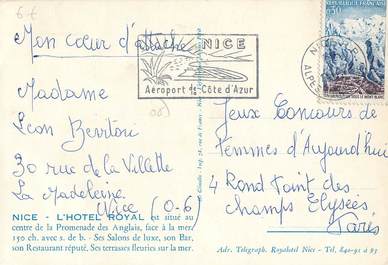 6€
Mon cœur d'attache
Madame
Leon Bevitori
30 rue de la Villette
La Madeleine
Nice (0-6)
NICE
Aéroport de la Côte d'Azur
RÉPUBLIQUE FRANÇAISE
0,30
NICE
ALPES
Jeux Concours de
Femmes d'Aujourd'hui
4 Rond Point des
Champs Elysées
Paris
NICE - L'HOTEL ROYAL est situé au
centre de la Promenade des Anglais, face à la mer.
150 ch. avec s. de b. - Ses Salons de luxe, son Bar,
son Restaurant réputé, Ses terrasses fleuries sur la mer.
Adr. Telegraph. Royalhotel Nice - Tél. 840-91 à 93